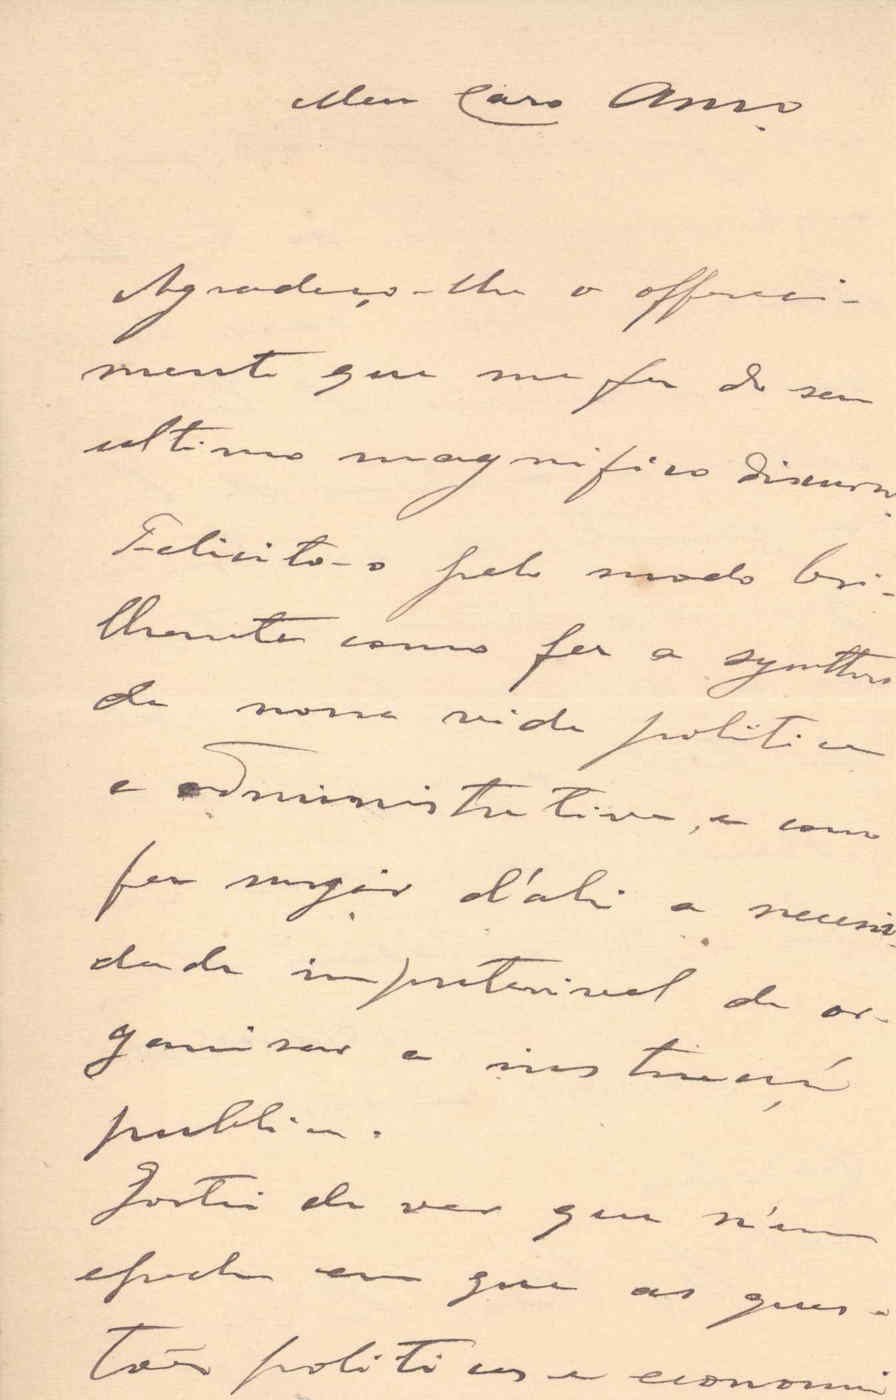 Meu Caro Amº
Agradeço-lhe o offereci-
mento que me fez do seu
ultimo magnifico discurso.
Felicito-o pelo modo bri-
lhante como fez a synthese
da nossa vida politica
e administrativa, e como
fez surgir d'ahi a necessi-
dade impreterivel de or-
ganisar a instrucção
publica.
Gostei de ver que n'uma
epocha em que as ques-
tões politicas e economi